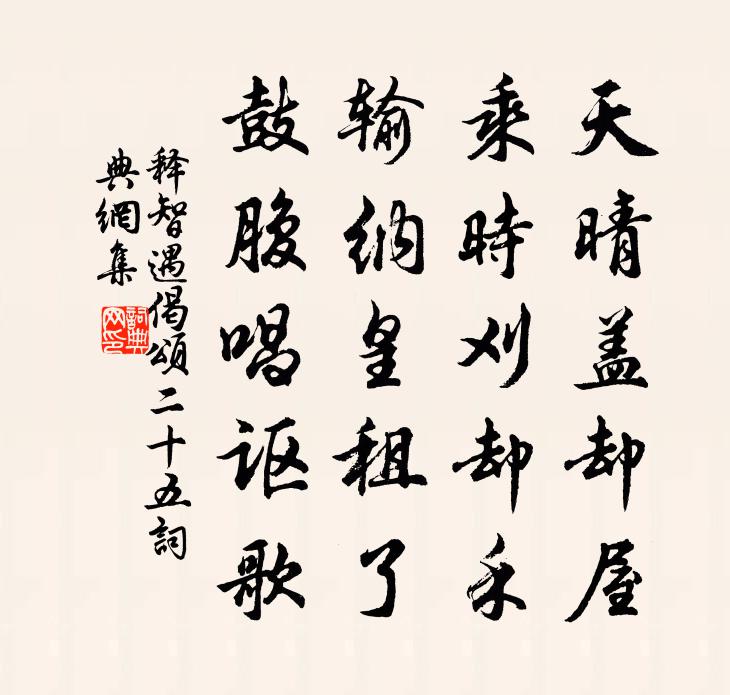 天晴盖却屋
乘時刈却禾
输纳皇租了
鼓腹唱讴歌
释智遇偈頌二十五詞
典網集
詞典网印